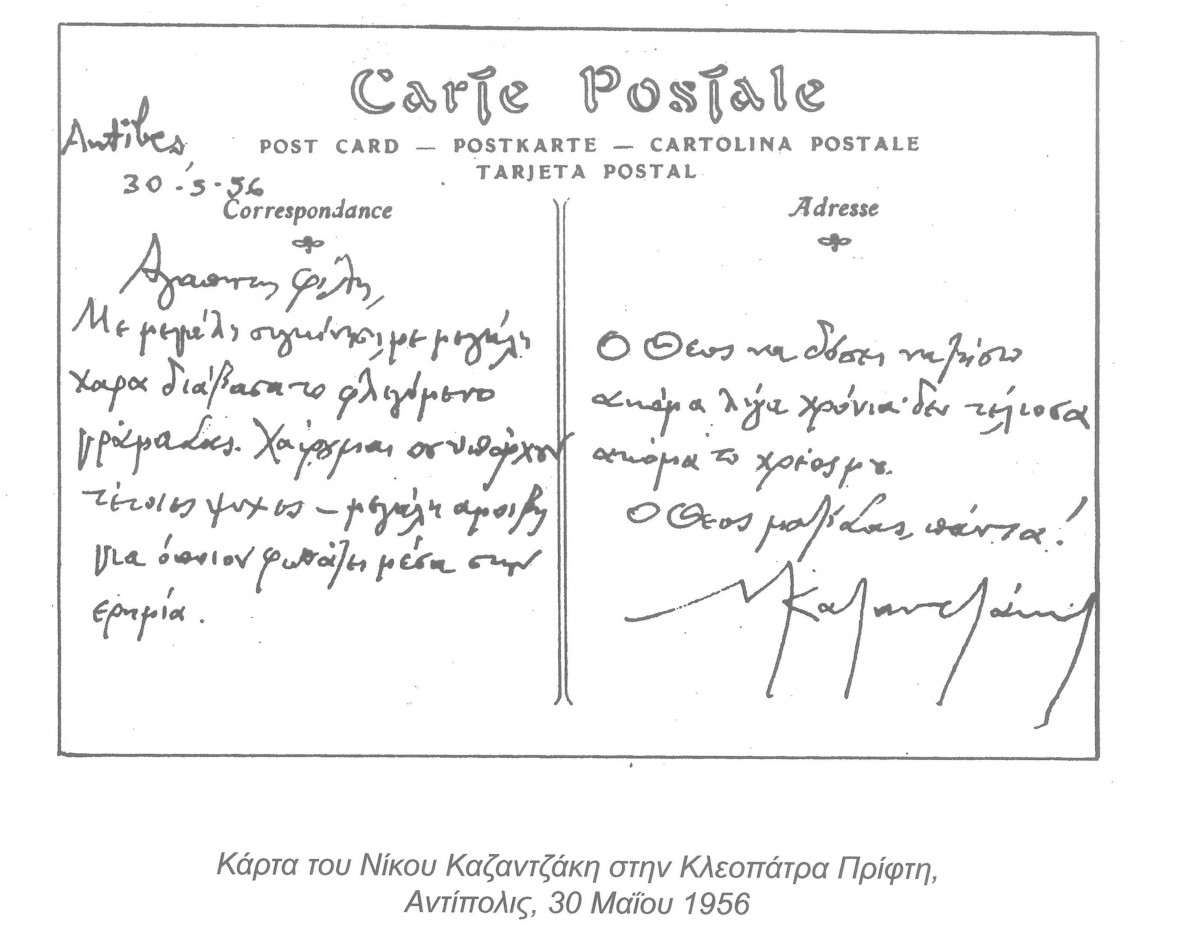 Carte Postale
POST CARD — POSTKARTE — CARTOLINA POSTALE
TARJETA POSTAL
Antibes,
30-5-56
Correspondance
Αγαπητη φίλη,
Με μεγάλη συγκίνηση, με μεγάλη
χαρα διάβασα το φλεγόμενο
γράμα Σας. Χαίρομαι που υπάρχουν
τέτοιες ψυχες — μεγάλη αμοιβη
για όποιον φωνάζει μέσα στην
ερημία.
Adresse
Ο Θεος να δόσει να ζήσω
ακόμα λίγα χρόνια· δεν τέλιοσα
ακόμα το χρέος μου.
Ο Θεος μαζί Σας, πάντα!
Ν Καζαντζάκης
Κάρτα του Νίκου Καζαντζάκη στην Κλεοπάτρα Πρίφτη,
Αντίπολις, 30 Μαΐου 1956